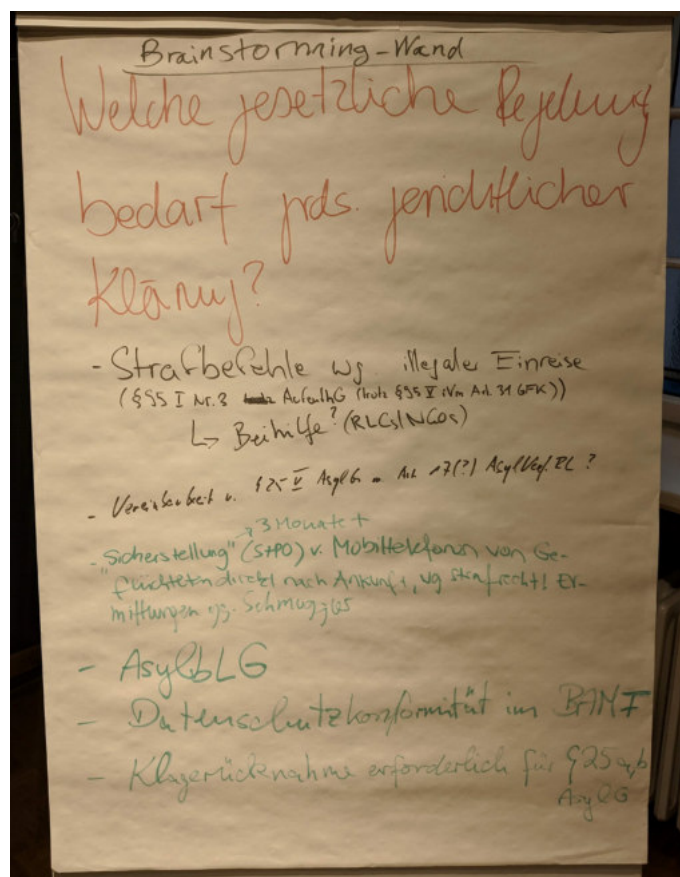 Brainstorming-Wand
Welche gesetzliche Regelung
bedarf grds. gerichtlicher
Klärung?
- Strafbefehle wg. illegaler Einreise
(§95 I Nr. 3 AufenthG (trotz §95 V iVm Art. 31 GFK))
↳ Beihilfe? (RLCs/NGOs)
- Vereinbarkeit v. §25 V AsylG m. Art. 17(?) AsylVerf.RL ?
→ 3 Monate +
- "Sicherstellung" (StPO) v. Mobiltelefonen von Ge-
flüchteten direkt nach Ankunft, wg strafrechtl. Er-
mittlungen gg. Schmuggler
- AsylbLG
- Datenschutzkonformität im BAMF
- Klagerücknahme erforderlich für §25a,b
AsylG